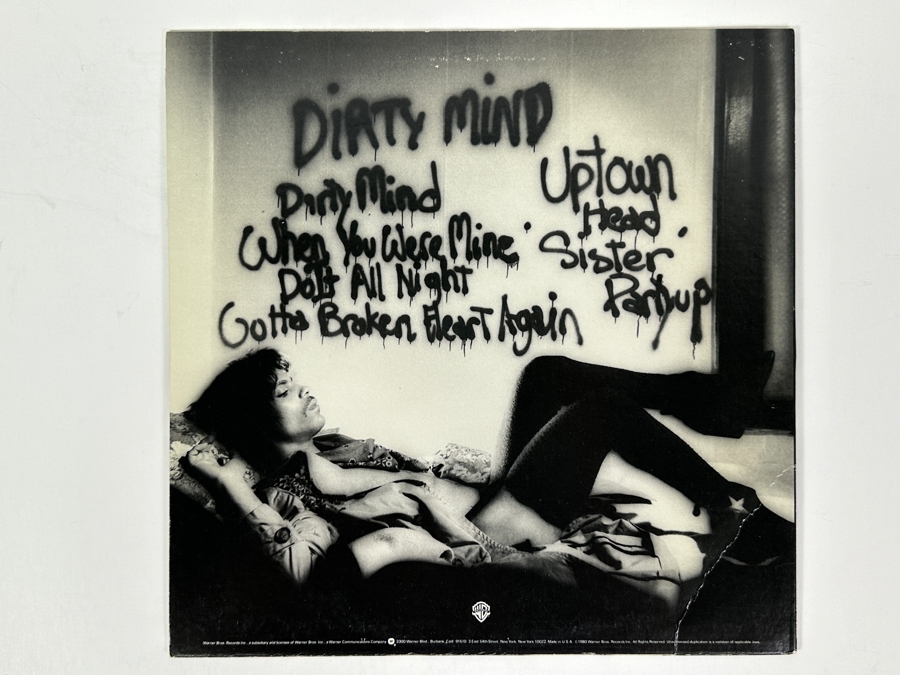 DiRTY MiND
Dirty Mind
When You Were Mine
Do It All Night
Gotta Broken Heart Again
Uptown
Head
Sister
Partyup
Warner Bros. Records Inc., a subsidiary and licensee of Warner Bros. Inc., a Warner Communications Company 3300 Warner Blvd., Burbank, Calif. 91510 3 East 54th Street, New York, New York 10022 Made in U.S.A. ©1980 Warner Bros. Records Inc. All Rights Reserved. Unauthorized duplication is a violation of applicable laws.